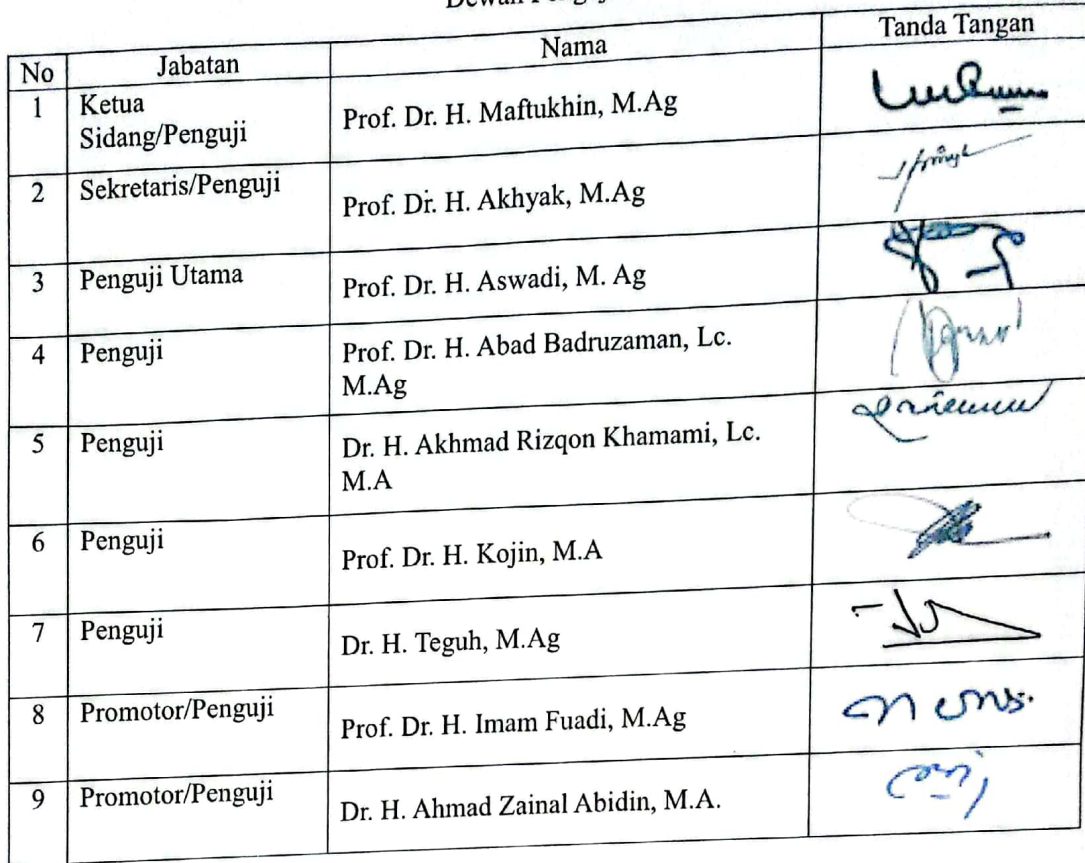 Dewan Penguji
No Jabatan Nama Tanda Tangan
1 Ketua
Sidang/Penguji Prof. Dr. H. Maftukhin, M.Ag
2 Sekretaris/Penguji Prof. Dr. H. Akhyak, M.Ag
3 Penguji Utama Prof. Dr. H. Aswadi, M. Ag
4 Penguji Prof. Dr. H. Abad Badruzaman, Lc.
M.Ag
5 Penguji Dr. H. Akhmad Rizqon Khamami, Lc.
M.A
6 Penguji Prof. Dr. H. Kojin, M.A
7 Penguji Dr. H. Teguh, M.Ag
8 Promotor/Penguji Prof. Dr. H. Imam Fuadi, M.Ag
9 Promotor/Penguji Dr. H. Ahmad Zainal Abidin, M.A.